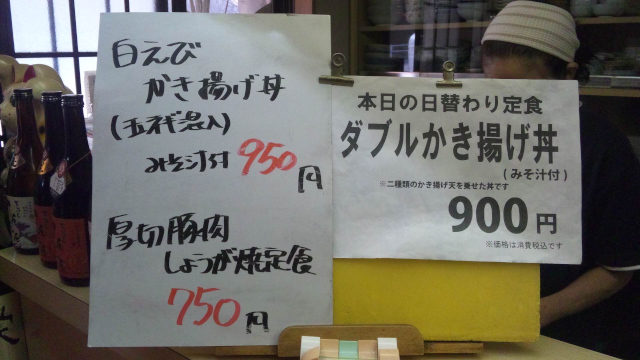 白えび
かき揚げ丼
(玉ネギ混入)
みそ汁付 950円
厚切豚肉
しょうが焼定食
750円
本日の日替わり定食
ダブルかき揚げ丼
(みそ汁付)
※二種類のかき揚げ天を乗せた丼です
900円
※価格は消費税込です